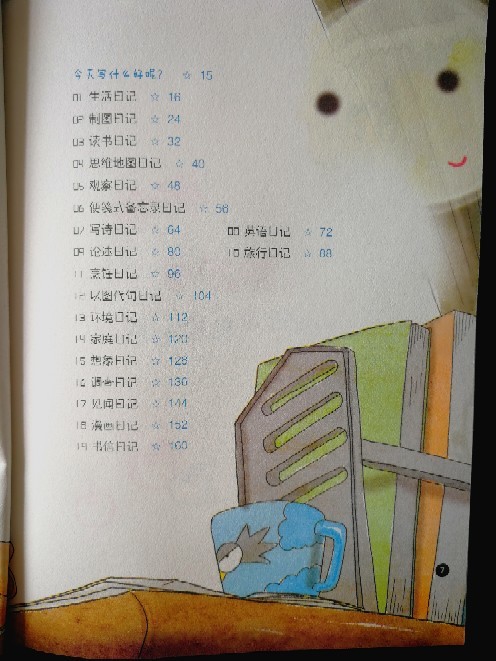 今天写什么好呢? ☆ 15
01 生活日记 ☆ 16
02 制图日记 ☆ 24
03 读书日记 ☆ 32
04 思维地图日记 ☆ 40
05 观察日记 ☆ 48
06 便笺式备忘录日记 ☆ 56
07 写诗日记 ☆ 64 08 英语日记 ☆ 72
09 论述日记 ☆ 80 10 旅行日记 ☆ 88
11 烹饪日记 ☆ 96
12 以图代句日记 ☆ 104
13 环境日记 ☆ 112
14 家庭日记 ☆ 120
15 想象日记 ☆ 128
16 调查日记 ☆ 136
17 见闻日记 ☆ 144
18 漫画日记 ☆ 152
19 书信日记 ☆ 160
7